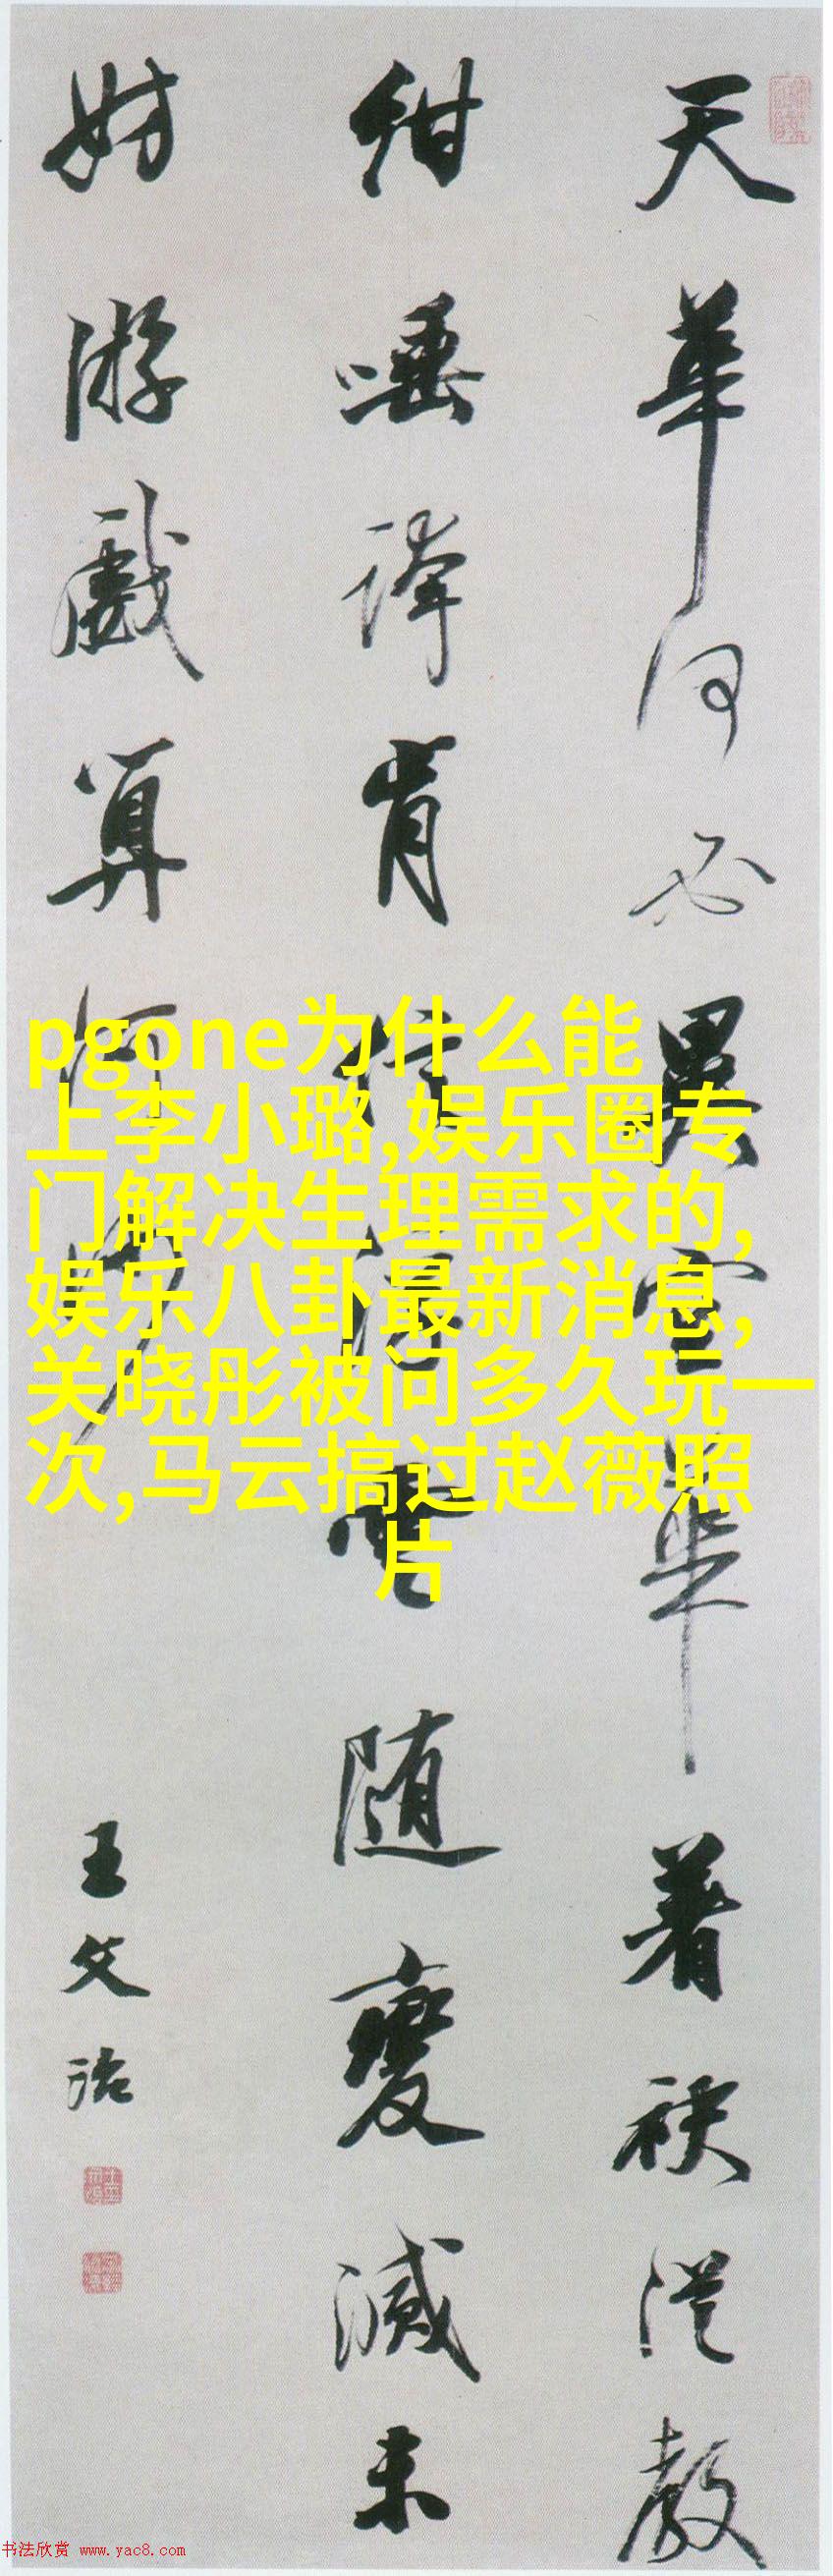 天華何必異空華著袂從教
紺唾肯信浮雲隨變滅未
妨游戲算河沙
王文治
pgone为什么能
上李小璐,娱乐圈专
门解决生理需求的,
娱乐八卦最新消息,
关晓彤被问多久玩一
次,马云搞过赵薇照
片
书法欣赏 www.yac8.com